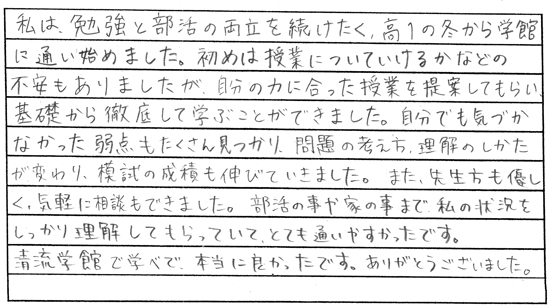 私は、勉強と部活の両立を続けたく、高1の冬から学館
に通い始めました。初めは授業についていけるかなどの
不安もありましたが、自分の力に合った授業を提案してもらい、
基礎から徹底して学ぶことができました。自分でも気づか
なかった弱点もたくさん見つかり、問題の考え方、理解のしかた
が変わり、模試の成績も伸びていきました。また、先生方も優し
く、気軽に相談もできました。部活の事や家の事まで私の状況を
しっかり理解してもらっていて、とても通いやすかったです。
清流学館で学べて、本当に良かったです。ありがとうございました。